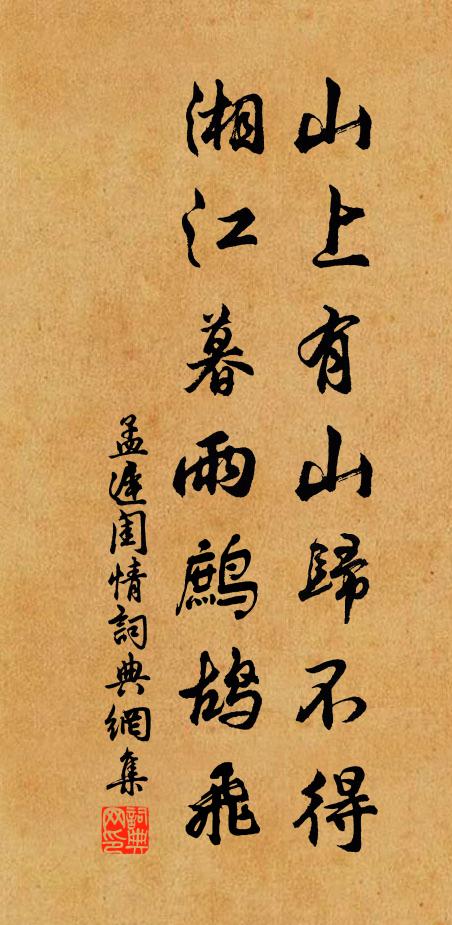 山上有山歸不得
湘江暮雨鷓鴣飛
孟遲閨情詞典網集
詞典网印